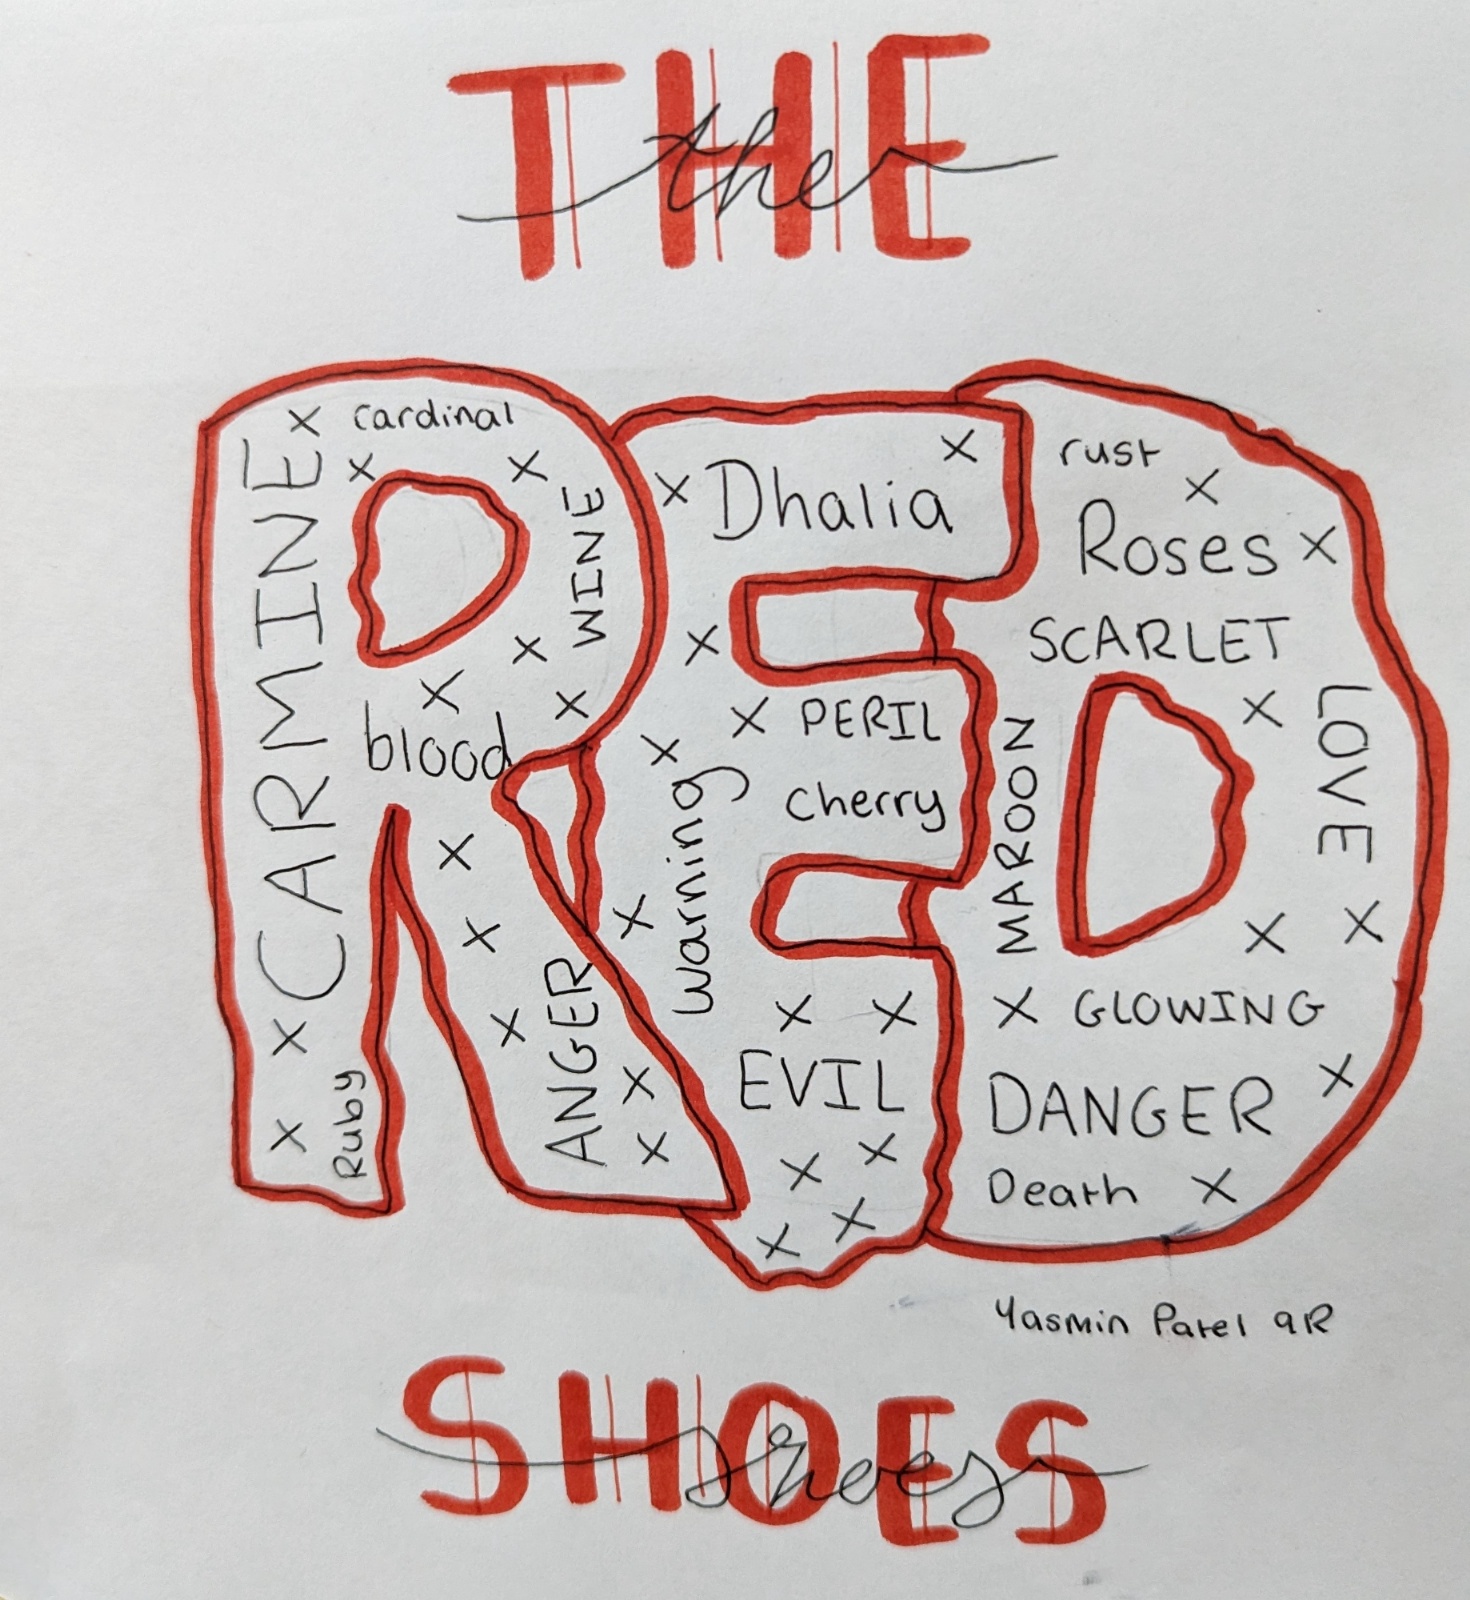 THE
the
RED
x cardinal
x x
CARMINE
WINE
x
x x
blood
x
x
x
x
ANGER
x
x
x
Ruby
x Dhalia x
x
x PERIL
x
Cherry
warning
x
x x
EVIL
x x
x x
rust
x
Roses x
SCARLET
x
LOVE
MAROON
x x
x GLOWING
DANGER x
Death x
Yasmin Patel 9R
SHOES
shoes